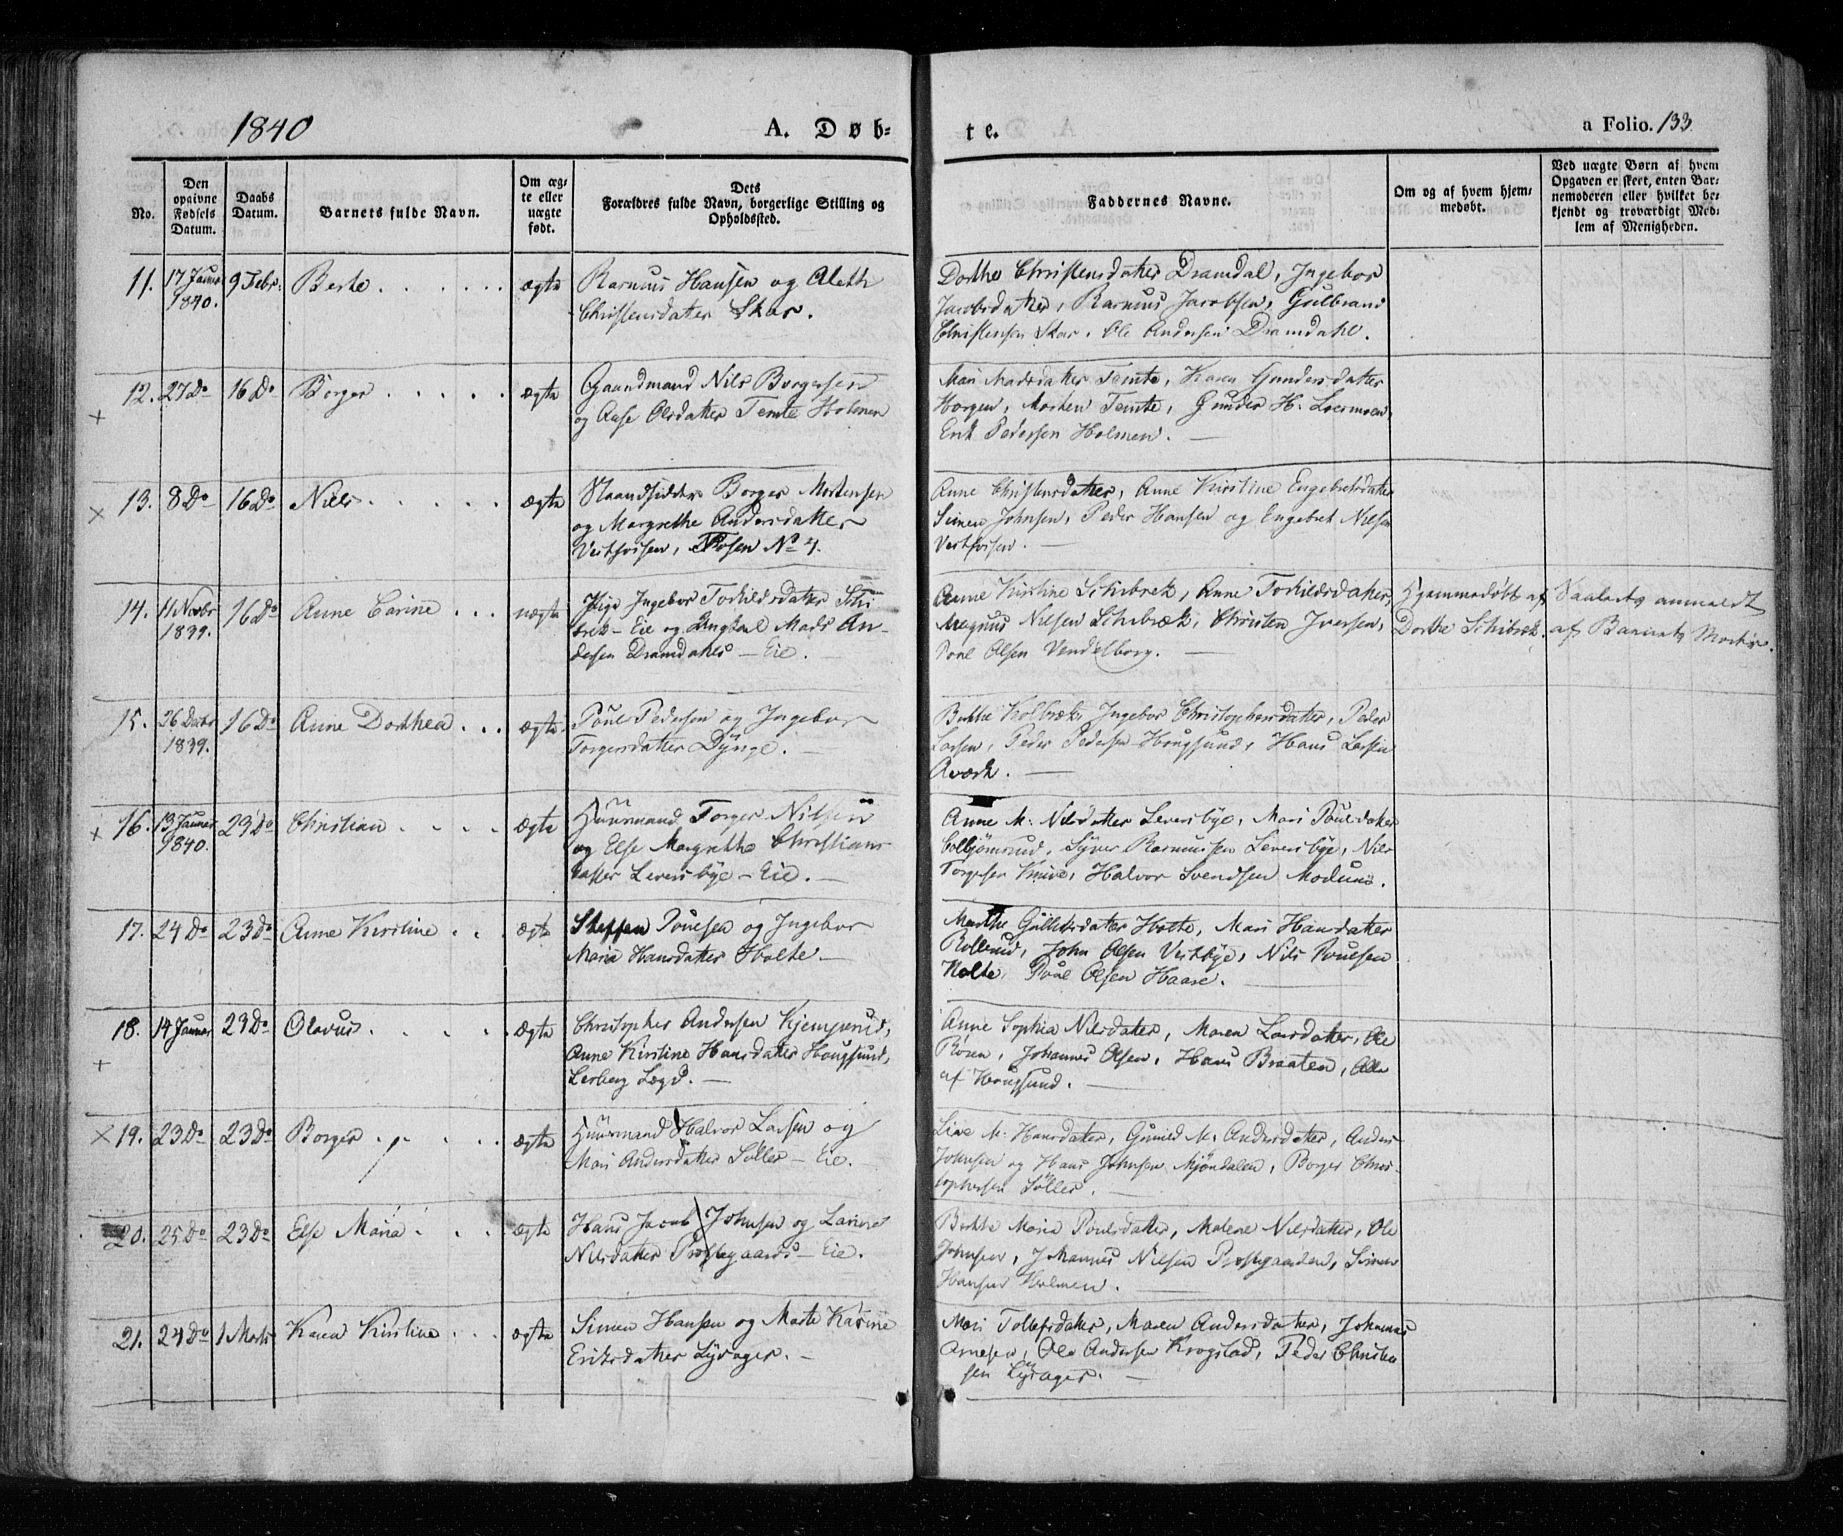 1840
A. Døb-
te.
a Folio. 133
No.
Den
opgivne
Fødsels
Datum.
Daabs
Datum.
Barnets fulde Navn.
Om æg-
te eller
uægte
født.
Dets
Forældres fulde Navn, borgerlige Stilling og
Opholdssted.
Faddernes Navne.
Om og af hvem hjem-
medøbt.
Ved uægte Børn af hvem
Opgaven er skeet, enten Bar-
nemoderen eller hvilket be-
kjendt og troværdigt Med-
lem af Menigheden.
11. 17 Januar 1840. 9 Febr. Berte ægte
Rasmus Hansen og Aleth
Christensdatter Skar.
Dorthe Christensdatter Dramdal, Ingebor
Jacobsdatter, Rasmus Jacobsen, Gulbrand
Christensen Skar, Ole Andersen Dramdahl.
12. 27 Do 16 Do Borger ægte
Gaardmand Nils Borgersen
og Aase Olsdatter Temte Holmen
Mari Madsdatter Temte, Karen Gundersdatter
Horgen, Morten Temte, Gunder H. Loesmoen,
Erik Pedersen Holmen.
13. 8 Do 16 Do Niels ægte
Strandsidder Borger Mortensen
og Margrethe Andersdatter
Vestfossen, No 4.
Anne Christensdatter, Anne Kirstine Engebretsdatter
Simen Johnsen, Peder Hansen og Engebret Nilsen
Vestfossen.
14. 11 Novbr 1839. 16 Do Anne Carine uægte
Pige Ingebor Torkildsdatter Schi-
brek-Eie og Ungkarl Mads An-
dersen Dramdahls-Eie.
Anne Kirstine Schibrek, Anne Torkildsdatter,
Magnus Nilsen Schibrek, Christen Iversen,
Poul Olsen Vendelborg.
Hjemmedøbt af
Dorthe Schibrek.
anmeldt
af Barnets Moder.
15. 26 Decbr 1839. 16 Do Anne Dorthea ægte
Poul Pedersen og Ingebor
Torgersdatter Dynge.
Berthe Kolbræk, Ingebor Christophersdatter, Peder
Larsen, Peder Pedersen Hougsund, Hans Larsen
16. 13 Januar 1840. 23 Do Christian ægte
Huusmand Torger Nilsen
og Else Margrethe Christians
datter Leversbye-Eie.
Anne M. Nilsdatter Leversbye, Mari Poulsdatter
Colbjørnsrud, Syver Rasmussen Leversbye, Nils
Torgersen Knive, Halvor Svendsen Modums.
17. 24 Do 23 Do Anne Kirstine ægte
Steffen Poulsen og Ingebor
Maria Hansdatter Holte.
Marthe Gulliksdatter Holte, Mari Hansdatter
Rollerud, John Olsen Vestbye, Nils Poulsen
Holte, Poul Olsen Haare.
18. 14 Januar 23 Do Olavus ægte
Christopher Andersen Kjempsrud,
Anne Kirstine Hansdatter Hougsund,
Lerberg Lægd.
Anne Sophia Nilsdatter, Maren Larsdatter, Ole
Røren, Johannes Olsen, Hans Braaten, Alle
af Hougsund.
19. 23 Do 23 Do Borger ægte
Huusmand Halvor Larsen og
Mari Andersdatter Søller-Eie.
Live M. Hansdatter, Gunild M. Andersdatter, Anders
Johnsen og Hans Johnsen Mjøndalen, Borger Chris-
tophersen Søller.
20. 25 Do 23 Do Else Maria ægte
Hans Jacob Johnsen og Larine
Nilsdatter Prostegaards-Eie.
Berthe Maria Poulsdatter, Malene Nilsdatter, Ole
Johnsen, Johannes Nilsen Prostgaarden, Simen
Hansen Holmen.
21. 24 Do 1 Marts Karen Kirstine ægte
Simen Hansen og Marte Karine
Eriksdatter Lyrager.
Mari Tollefsdatter, Maren Andersdatter, Johannes
Arnesen, Ole Andersen Krogstad, Peder Christen
sen Lyrager.